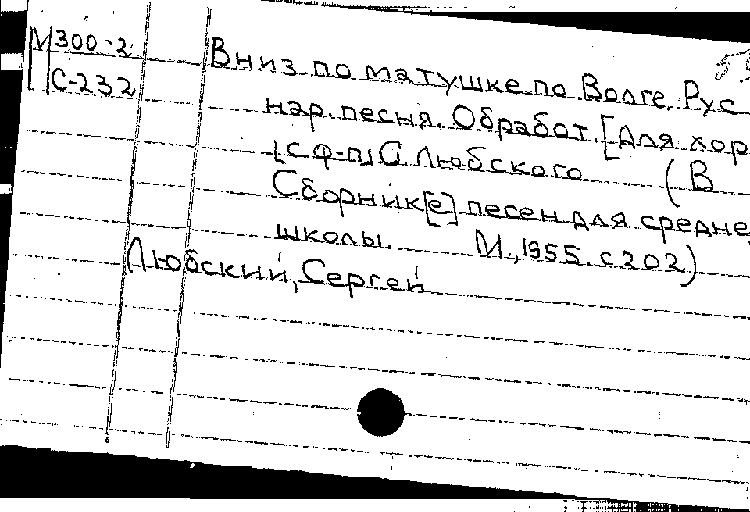 М300-2
С-232
Вниз по матушке по Волге. Рус
нар. песня. Обработ. [для хор
[с ф-п] С. Любского (В
Сборник[е] песен для средне
школы. М., 1955. с 202)
Любский, Сергей